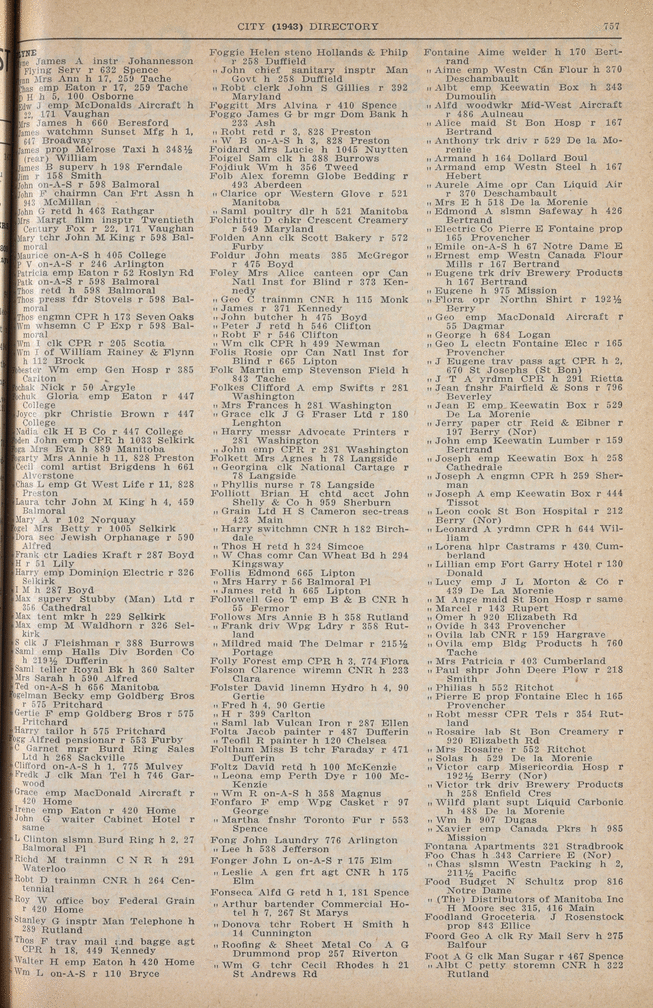 CITY (1943) DIRECTORY 757
James A instr Johannesson
Flying Serv r 632 Spence
Mrs Ann h 17, 259 Tache
emp Eaton r 17, 259 Tache
H h 5, 100 Osborne
J emp McDonalds Aircraft h
22, 171 Vaughan
James h 660 Beresford
watchmn Sunset Mfg h 1,
647 Broadway
James prop Melrose Taxi h 348½
(rear) William
James B superv h 198 Ferndale
r 158 Smith
John on-A-S r 598 Balmoral
John F chairmn Can Frt Assn h
943 McMillan
John G retd h 463 Rathgar
Mrs Margt film insptr Twentieth
Century Fox r 22, 171 Vaughan
Mary tchr John M King r 598 Bal-
moral
Maurice on-A-S h 405 College
P V on-A-S r 246 Arlington
Patricia emp Eaton r 52 Roslyn Rd
Patk on-A-S r 598 Balmoral
Thos retd h 598 Balmoral
Thos press fdr Stovels r 598 Bal-
moral
Thos engmn CPR h 173 Seven Oaks
Wm whsemn C P Exp r 598 Bal-
moral
Wm I clk CPR r 205 Scotia
Wm J of William Rainey & Flynn
h 112 Brock
Wm emp Gen Hosp r 385
Cariton
Nick r 50 Argyle
Gloria emp Eaton r 447
College
Joyce pkr Christie Brown r 447
College
Nadia clk H B Co r 447 College
John emp CPR h 1033 Selkirk
Mrs Eva h 889 Manitoba
Mrs Annie h 11, 828 Preston
Cecil coml artist Brigdens h 661
Alverstone
Chas L emp Gt West Life r 11, 828
Preston
Laura tchr John M King h 4, 459
Balmoral
Mary A r 102 Norquay
Mrs Betty r 1005 Selkirk
Dora sec Jewish Orphanage r 590
Alfred
Frank ctr Ladies Kraft r 287 Boyd
H r 51 Lily
Harry emp Dominion Electric r 326
Selkirk
M h 287 Boyd
Max superv Stubby (Man) Ltd r
356 Cathedral
Max tent mkr h 229 Selkirk
Max emp M Waldhorn r 326 Sel-
kirk
S clk J Fleishman r 388 Burrows
Saml emp Halls Div Borden Co
h 219½ Dufferin
Saml teller Royal Bk h 360 Salter
Mrs Sarah h 590 Alfred
Ted on-A-S h 656 Manitoba
Fogelman Becky emp Goldberg Bros
r 575 Pritchard
Gertie F emp Goldberg Bros r 575
Pritchard
Harry tailor h 575 Pritchard
Fogg Alfred pensionar r 553 Furby
C Garnet mgr Burd Ring Sales
Ltd h 268 Sackville
Clifford on-A-S h 1, 775 Mulvey
Fredk J clk Man Tel h 746 Gar-
wood
Grace emp MacDonald Aircraft r
420 Home
Irene emp Eaton r 420 Home
John G waiter Cabinet Hotel r
same
L Clinton slsmn Burd Ring h 2, 27
Balmoral Pl
Richd M trainmn C N R h 291
Waterloo
Robt D trainmn CNR h 264 Cen-
tennial
Roy W office boy Federal Grain
r 420 Home
Stanley G insptr Man Telephone h
289 Rutland
Thos F trav mail and bagge agt
CPR h 18, 449 Kennedy
Walter H emp Eaton h 420 Home
Wm L on-A-S r 110 Bryce
Foggie Helen steno Hollands & Philp
r 258 Duffield
" John chief sanitary insptr Man
Govt h 258 Duffield
" Robt clerk John S Gillies r 392
Maryland
Foggitt Mrs Alvina r 410 Spence
Foggo James G br mgr Dom Bank h
233 Ash
" Robt retd r 3, 828 Preston
" W B on-A-S h 3, 828 Preston
Foidard Mrs Lucie h 1045 Nuytten
Foigel Sam clk h 388 Burrows
Fojdiuk Wm h 356 Tweed
Folb Alex foremn Globe Bedding r
493 Aberdeen
" Clarice opr Western Glove r 521
Manitoba
" Saml poultry dlr h 521 Manitoba
Folchitto D chkr Crescent Creamery
r 549 Maryland
Folden Ann clk Scott Bakery r 572
Furby
Foldur John meats 385 McGregor
r 475 Boyd
Foley Mrs Alice canteen opr Can
Natl Inst for Blind r 373 Ken-
nedy
" Geo C trainmn CNR h 115 Monk
" James r 371 Kennedy
" John butcher h 475 Boyd
" Peter J retd h 546 Clifton
" Robt F r 546 Clifton
" Wm clk CPR h 499 Newman
Folis Rosie opr Can Natl Inst for
Blind r 665 Lipton
Folk Martin emp Stevenson Field h
843 Tache
Folkes Clifford A emp Swifts r 281
Washington
" Mrs Frances h 281 Washington
" Grace clk J G Fraser Ltd r 180
Lenghton
" Harry messr Advocate Printers r
281 Washington
" John emp CPR r 281 Washington
Folkett Mrs Agnes h 78 Langside
" Georgina clk National Cartage r
78 Langside
" Phyllis nurse r 78 Langside
Folliott Brian H chtd acct John
Shelly & Co h 959 Sherburn
" Grain Ltd H S Cameron sec-treas
423 Main
" Harry switchmn CNR h 182 Birch-
dale
" Thos H retd h 324 Simcoe
" W Chas comr Can Wheat Bd h 294
Kingsway
Follis Edmond 665 Lipton
" Mrs Harry r 56 Balmoral Pl
" James retd h 665 Lipton
Followell Geo T emp B & B CNR h
55 Fermor
Follows Mrs Annie B h 358 Rutland
" Frank driv Wpg Ldry r 358 Rut-
land
" Mildred maid The Delmar r 215½
Portage
Folly Forest emp CPR h 3, 774 Flora
Folson Clarence wiremn CNR h 233
Clara
Folster David linemn Hydro h 4, 90
Gertie
" Fred h 4, 90 Gertie
" H r 399 Carlton
" Saml lab Vulcan Iron r 287 Ellen
Folta Jacob painter r 487 Dufferin
" Teofil R painter h 120 Chelsea
Foltham Miss B tchr Faraday r 471
Dufferin
Foltz David retd h 100 McKenzie
" Leona emp Perth Dye r 100 Mc-
Kenzie
" Wm R on-A-S h 358 Magnus
Fonfaro F emp Wpg Casket r 97
George
" Martha fnshr Toronto Fur r 553
Spence
Fong John Laundry 776 Arlington
" Lee h 538 Jefferson
Fonger John L on-A-S r 175 Elm
" Leslie A gen frt agt CNR h 175
Elm
Fonseca Alfd G retd h 1, 181 Spence
" Arthur bartender Commercial Ho-
tel h 7, 267 St Marys
" Donova tchr Robert H Smith h
14 Cunnington
" Roofing & Sheet Metal Co A G
Drummond prop 257 Riverton
" Wm G tchr Cecil Rhodes h 21
St Andrews Rd
Fontaine Aime welder h 170 Bert-
rand
" Aime emp Westn Can Flour h 370
Deschambault
" Albt emp Keewatin Box h 343
Dumoulin
" Alfd woodwkr Mid-West Aircraft
r 486 Aulneau
" Alice maid St Bon Hosp r 167
Bertrand
" Anthony trk driv r 529 De la Mo-
renie
" Armand h 164 Dollard Boul
" Armand emp Westn Steel h 167
Hebert
" Aurele Aime opr Can Liquid Air
r 370 Deschambault
" Mrs E h 518 De la Morenie
" Edmond A slsmn Safeway h 426
Bertrand
" Electric Co Pierre E Fontaine prop
165 Provencher
" Emile on-A-S h 67 Notre Dame E
" Ernest emp Westn Canada Flour
Mills r 167 Bertrand
" Eugene trk driv Brewery Products
h 167 Bertrand
" Eugene h 975 Mission
" Flora opr Northn Shirt r 192½
Berry
" Geo emp MacDonald Aircraft r
55 Dagmar
" George h 684 Logan
" Geo L electn Fontaine Elec r 165
Provencher
" J Eugene trav pass agt CPR h 2,
670 St Josephs (St Bon)
" J T A yrdmn CPR h 291 Rietta
" Jean fnshr Fairfield & Sons r 796
Beverley
" Jean E emp Keewatin Box r 529
De La Morenie
" Jerry paper ctr Reid & Eibner r
197 Berry (Nor)
" John emp Keewatin Lumber r 159
Bertrand
" Joseph emp Keewatin Box h 258
Cathedral
" Joseph A engmn CPR h 259 Sher-
man
" Joseph A emp Keewatin Box r 444
Tissot
" Leon cook St Bon Hospital r 212
Berry (Nor)
" Leonard A yrdmn CPR h 644 Wil-
liam
" Lorena hlpr Castrams r 430 Cum-
berland
" Lillian emp Fort Garry Hotel r 130
Donald
" Lucy emp J L Morton & Co r
439 De La Morenie
" M Ange maid St Bon Hosp r same
" Marcel r 143 Rupert
" Omer h 920 Elizabeth Rd
" Ovide h 343 Provencher
" Ovila lab CNR r 159 Hargrave
" Ovila emp Bldg Products h 760
Tache
" Mrs Patricia r 403 Cumberland
" Paul shpr John Deere Plow r 218
Smith
" Philias h 552 Ritchot
" Pierre E prop Fontaine Elec h 165
Provencher
" Robt messr CPR Tels r 354 Rut-
land
" Rosaire lab St Bon Creamery r
920 Elizabeth Rd
" Mrs Rosaire r 552 Ritchot
" Solas h 529 De la Morenie
" Victor carp Misericordia Hosp r
192½ Berry (Nor)
" Victor trk driv Brewery Products
h 258 Enfield Cres
" Wilfd plant supt Liquid Carbonic
h 488 De la Morenie
" Wm h 907 Dugas
" Xavier emp Canada Pkrs h 985
Mission
Fontana Apartments 321 Stradbrook
Foo Chas h 343 Carriere E (Nor)
" Chas slsmn Westn Packing h 2,
211½ Pacific
Food Budget N Schultz prop 816
Notre Dame
" (The) Distributors of Manitoba Inc
H Moore sec 315, 416 Main
Foodland Groceteria J Rosenstock
prop 843 Ellice
Foord Geo A clk Ry Mail Serv h 275
Balfour
Foot A G clk Man Sugar r 467 Spence
" Albt C petty storemn CNR h 322
Rutland